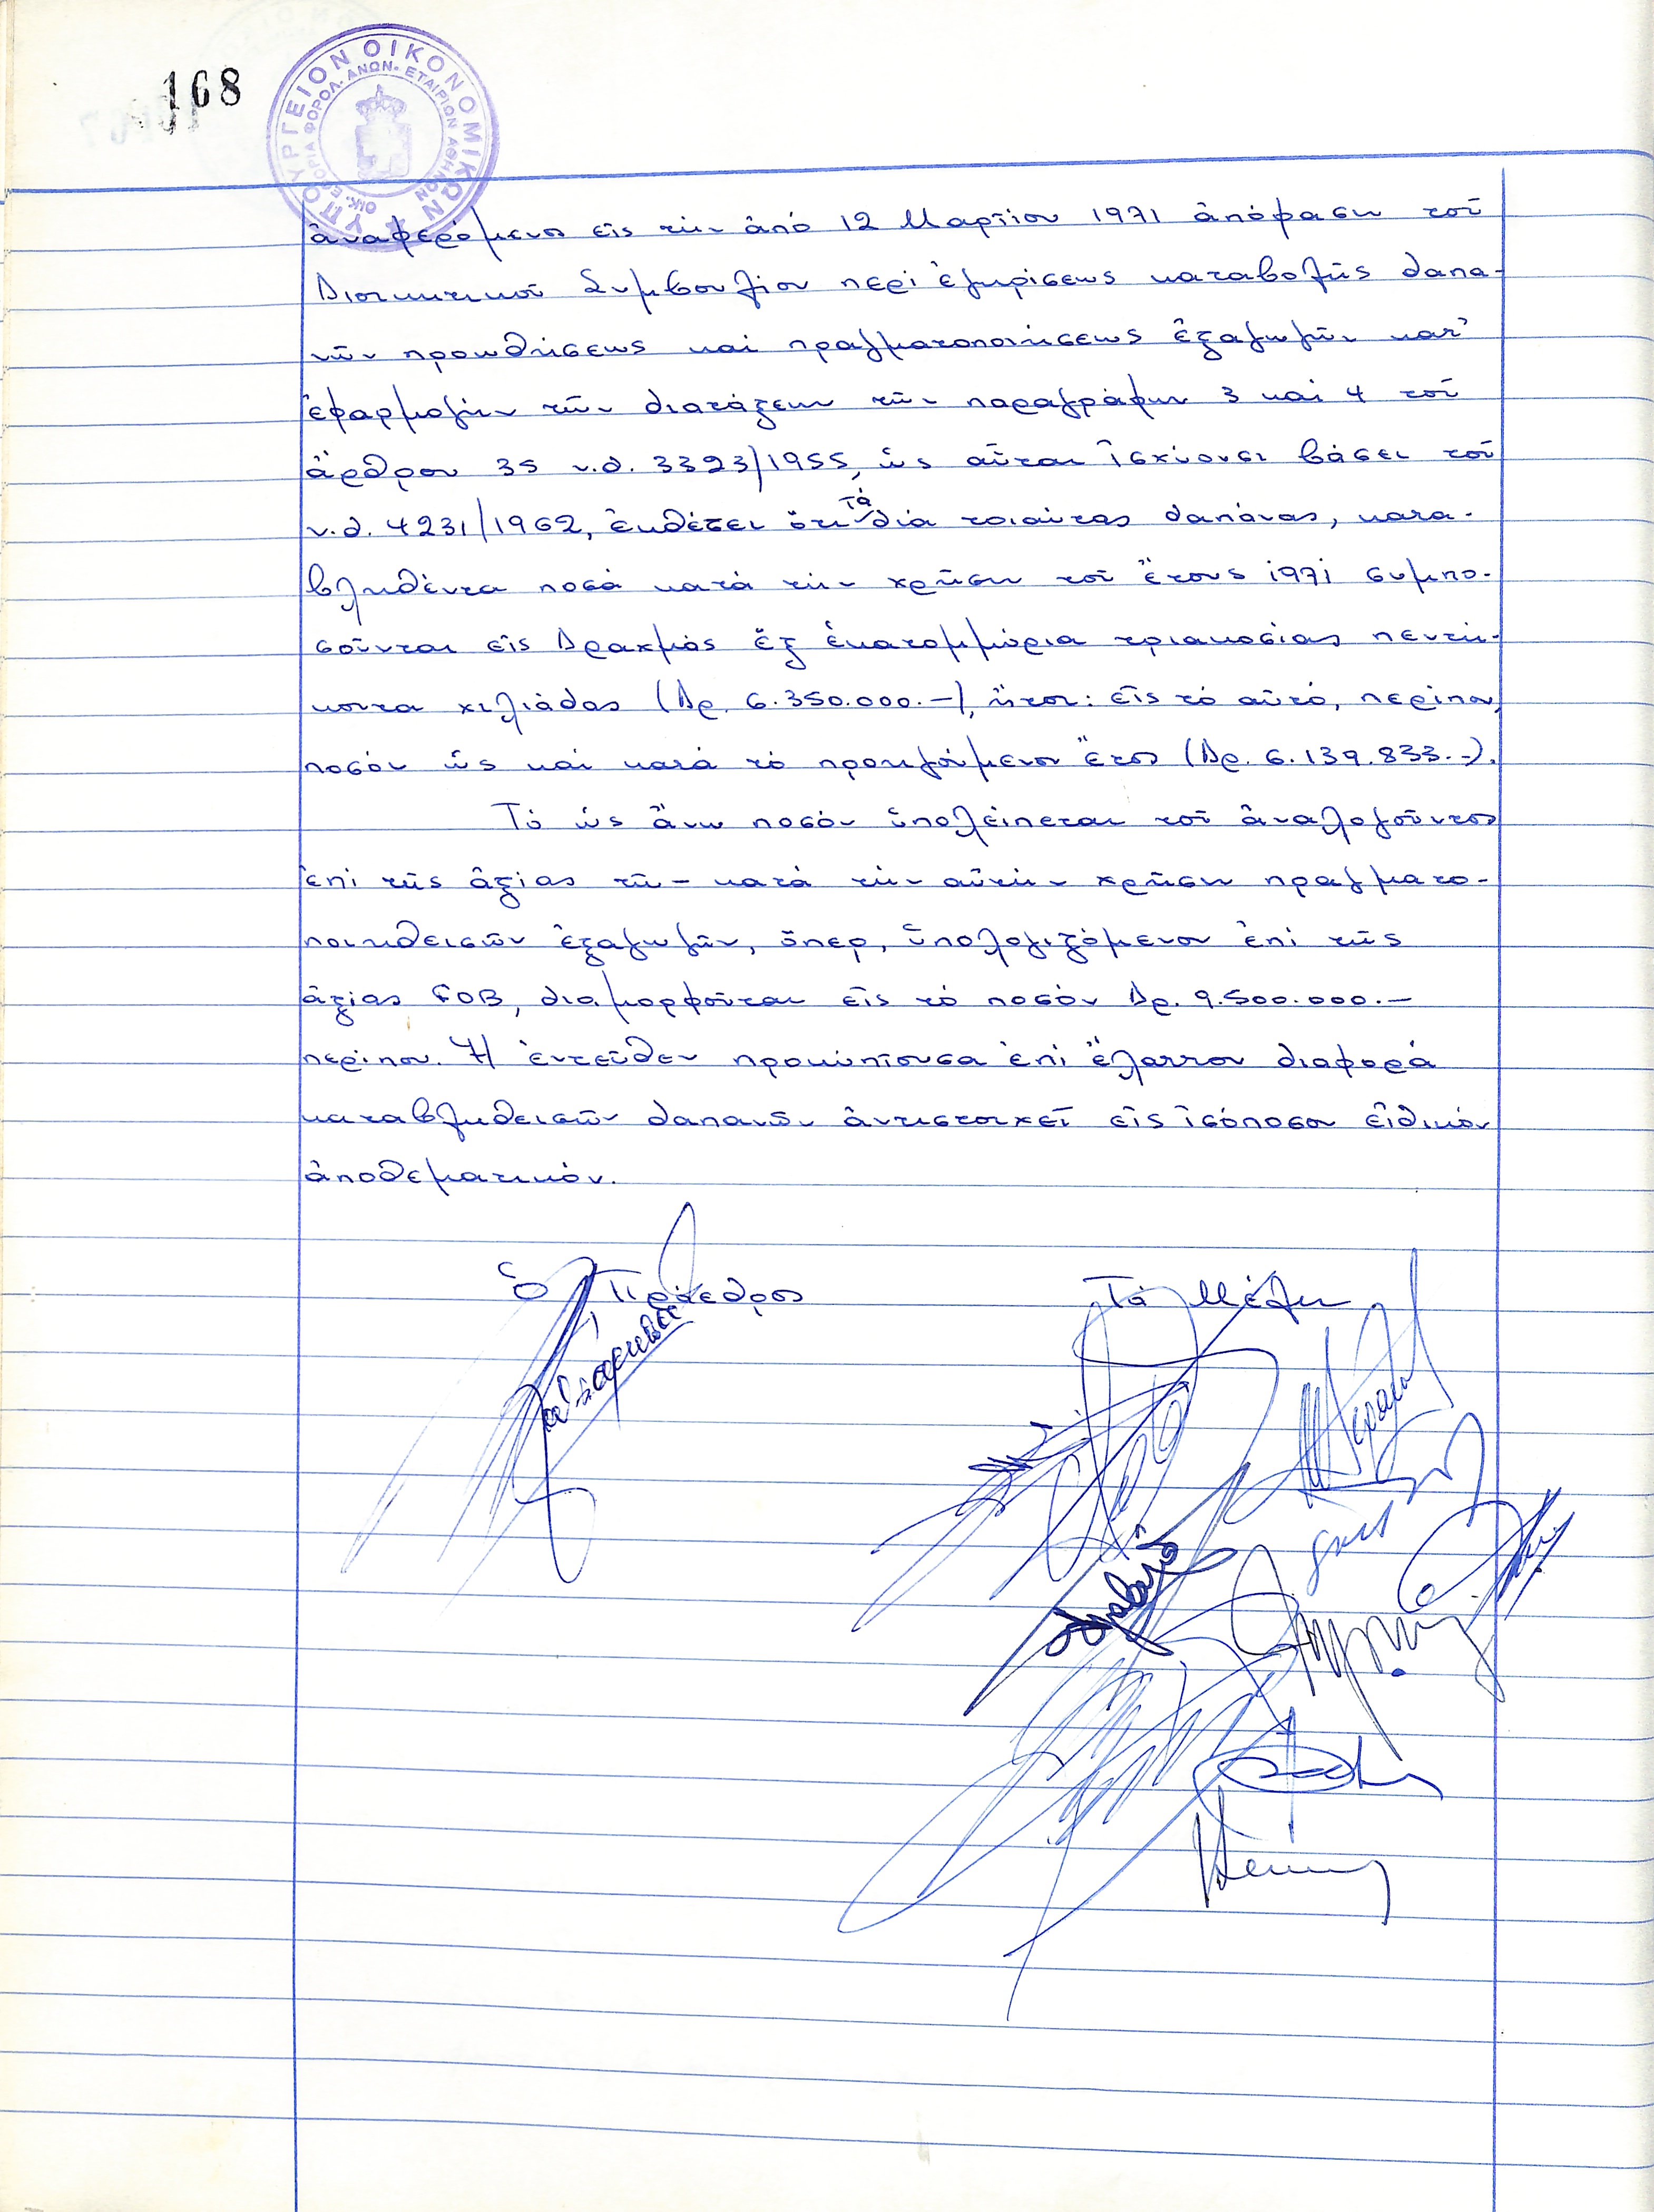 168
ΥΠΟΥΡΓΕΙΟΝ ΟΙΚΟΝΟΜΙΚΩΝ
ΟΙΚ. ΕΦΟΡΙΑ ΦΟΡΟΛ. ΑΝΩΝ. ΕΤΑΙΡΙΩΝ ΑΘΗΝΩΝ
ἀναφερόμενος εἰς τὴν ἀπὸ 12 Μαρτίου 1971 ἀπόφασιν τοῦ
Διοικητικοῦ Συμβουλίου περὶ ἐγκρίσεως καταβολῆς δαπα-
νῶν προωθήσεως καὶ πραγματοποιήσεως ἐξαγωγῶν κατ'
ἐφαρμογὴν τῶν διατάξεων τῶν παραγράφων 3 καὶ 4 τοῦ
ἄρθρου 35 ν.δ. 3323/1955, ὡς αὗται ἰσχύουσι βάσει τοῦ
ν.δ. 4231/1962, ἐκθέτει ὅτι τὰ διὰ τοιαύτας δαπάνας, κατα-
βληθέντα ποσὰ κατὰ τὴν χρῆσιν τοῦ ἔτους 1971 συμπο-
σοῦνται εἰς Δραχμὰς ἓξ ἑκατομμύρια τριακοσίας πεντή-
κοντα χιλιάδας (Δρ. 6.350.000.-), ἤτοι: εἰς τὸ αὐτό, περίπου,
ποσὸν ὡς καὶ κατὰ τὸ προηγούμενον ἔτος (Δρ. 6.139.833.-).
Τὸ ὡς ἄνω ποσὸν ὑπολείπεται τοῦ ἀναλογοῦντος
ἐπὶ τῆς ἀξίας τῶν κατὰ τὴν αὐτὴν χρῆσιν πραγματο-
ποιηθεισῶν ἐξαγωγῶν, ὅπερ, ὑπολογιζόμενον ἐπὶ τῆς
ἀξίας FOB, διαμορφοῦται εἰς τὸ ποσὸν Δρ. 9.500.000.-
περίπου. Ἡ ἐντεῦθεν προκύπτουσα ἐπὶ ἔλαττον διαφορὰ
καταβληθεισῶν δαπανῶν ἀντιστοιχεῖ εἰς ἰσόποσον εἰδικὸν
ἀποθεματικόν.
Ὁ Πρόεδρος
Τὰ Μέλη